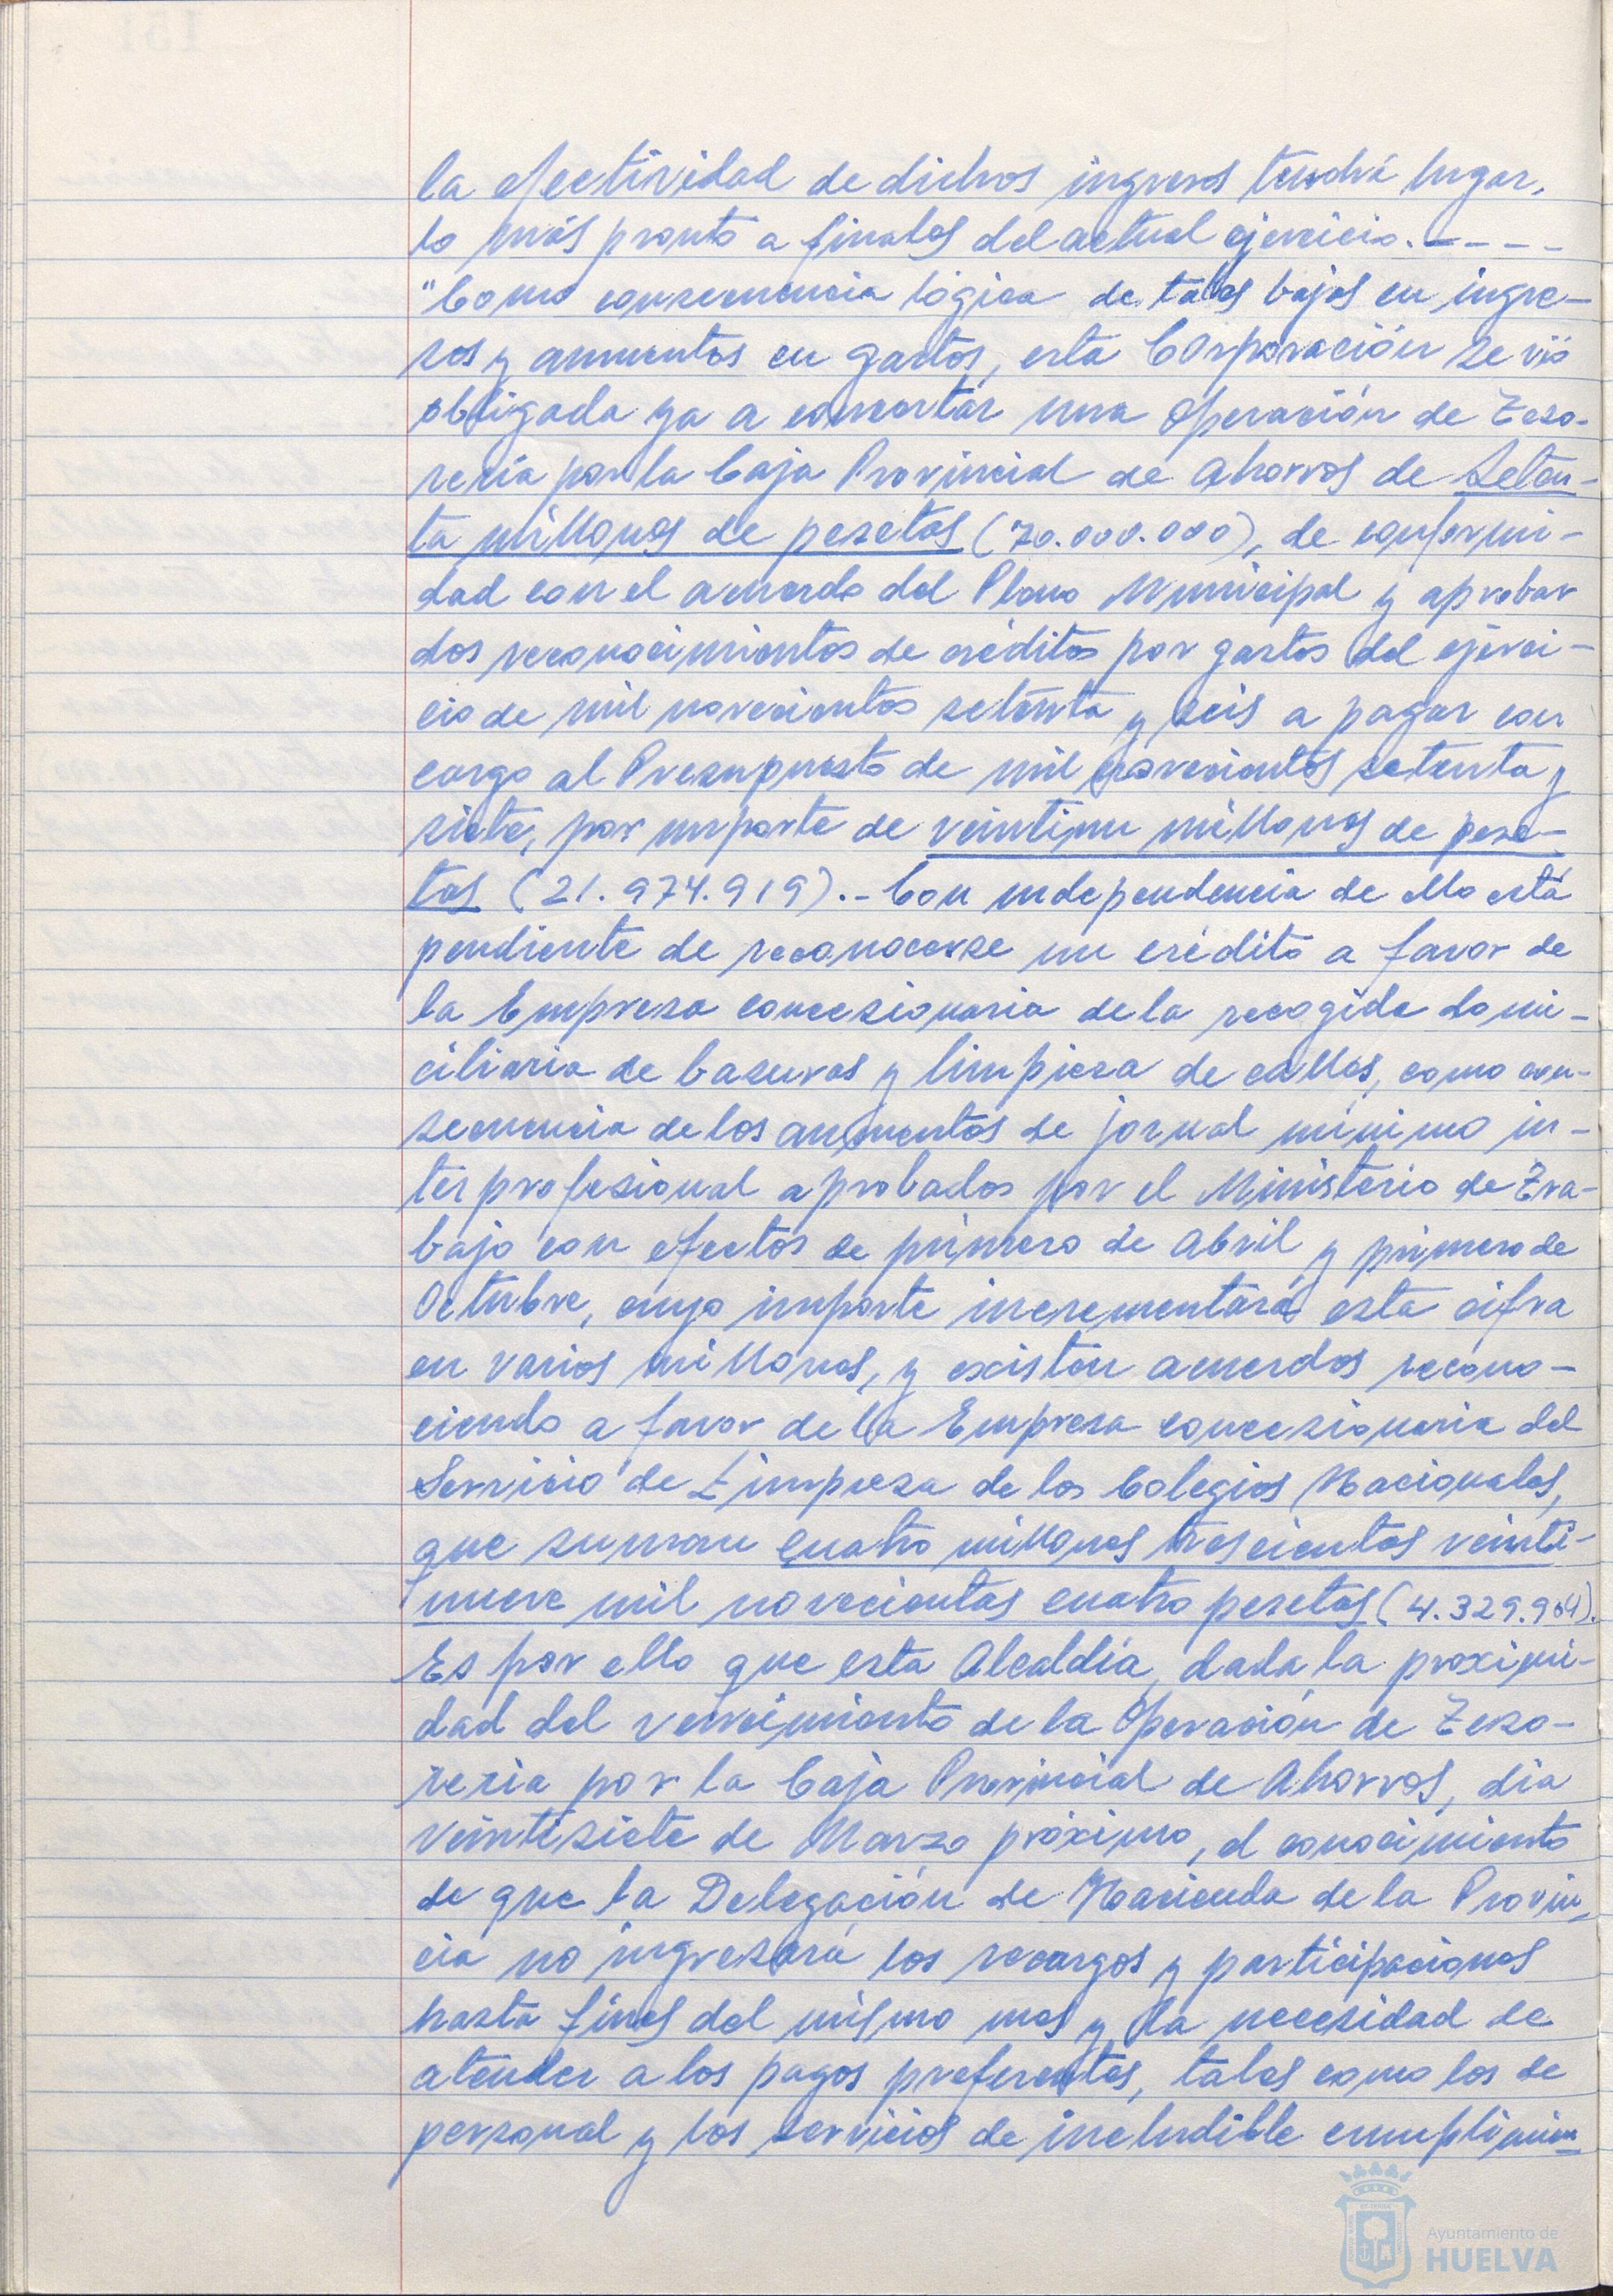 la efectividad de dichos ingresos tendrá lugar,
lo más pronto a finales del actual ejercicio.----
"Como consecuencia lógica de tales bajas en ingre-
sos y aumentos en gastos, esta Corporación se vió
obligada ya a concertar una Operación de Teso-
rería por la Caja Provincial de Ahorros de Seten-
ta millones de pesetas (70.000.000), de conformi-
dad con el acuerdo del Pleno Municipal y aprobar
dos reconocimientos de créditos por gastos del ejerci-
cio de mil novecientos setenta y seis a pagar con
cargo al Presupuesto de mil novecientos setenta y
siete, por importe de veintiun millones de pese-
tas (21.974.919).- Con independencia de ello está
pendiente de reconocerse un crédito a favor de
la Empresa concesionaria de la recogida domi-
ciliaria de basuras y limpieza de calles, como con-
secuencia de los aumentos de jornal mínimo in-
terprofesional aprobados por el Ministerio de Tra-
bajo con efectos de primero de Abril y primero de
Octubre, cuyo importe incrementará esta cifra
en varios millones, y existen acuerdos recono-
ciendo a favor de la Empresa concesionaria del
Servicio de Limpieza de los Colegios Nacionales,
que suman cuatro millones trescientas veinti-
nueve mil novecientas cuatro pesetas (4.329.904).
Es por ello que esta Alcaldía, dada la proximi-
dad del vencimiento de la Operación de Teso-
rería por la Caja Provincial de Ahorros, día
veintisiete de Marzo próximo, el conocimiento
de que la Delegación de Hacienda de la Provin-
cia no ingresará los recargos y participaciones
hasta fines del mismo mes y la necesidad de
atender a los pagos preferentes, tales como los de
personal y los servicios de ineludible cumplimien-
Ayuntamiento de
HUELVA